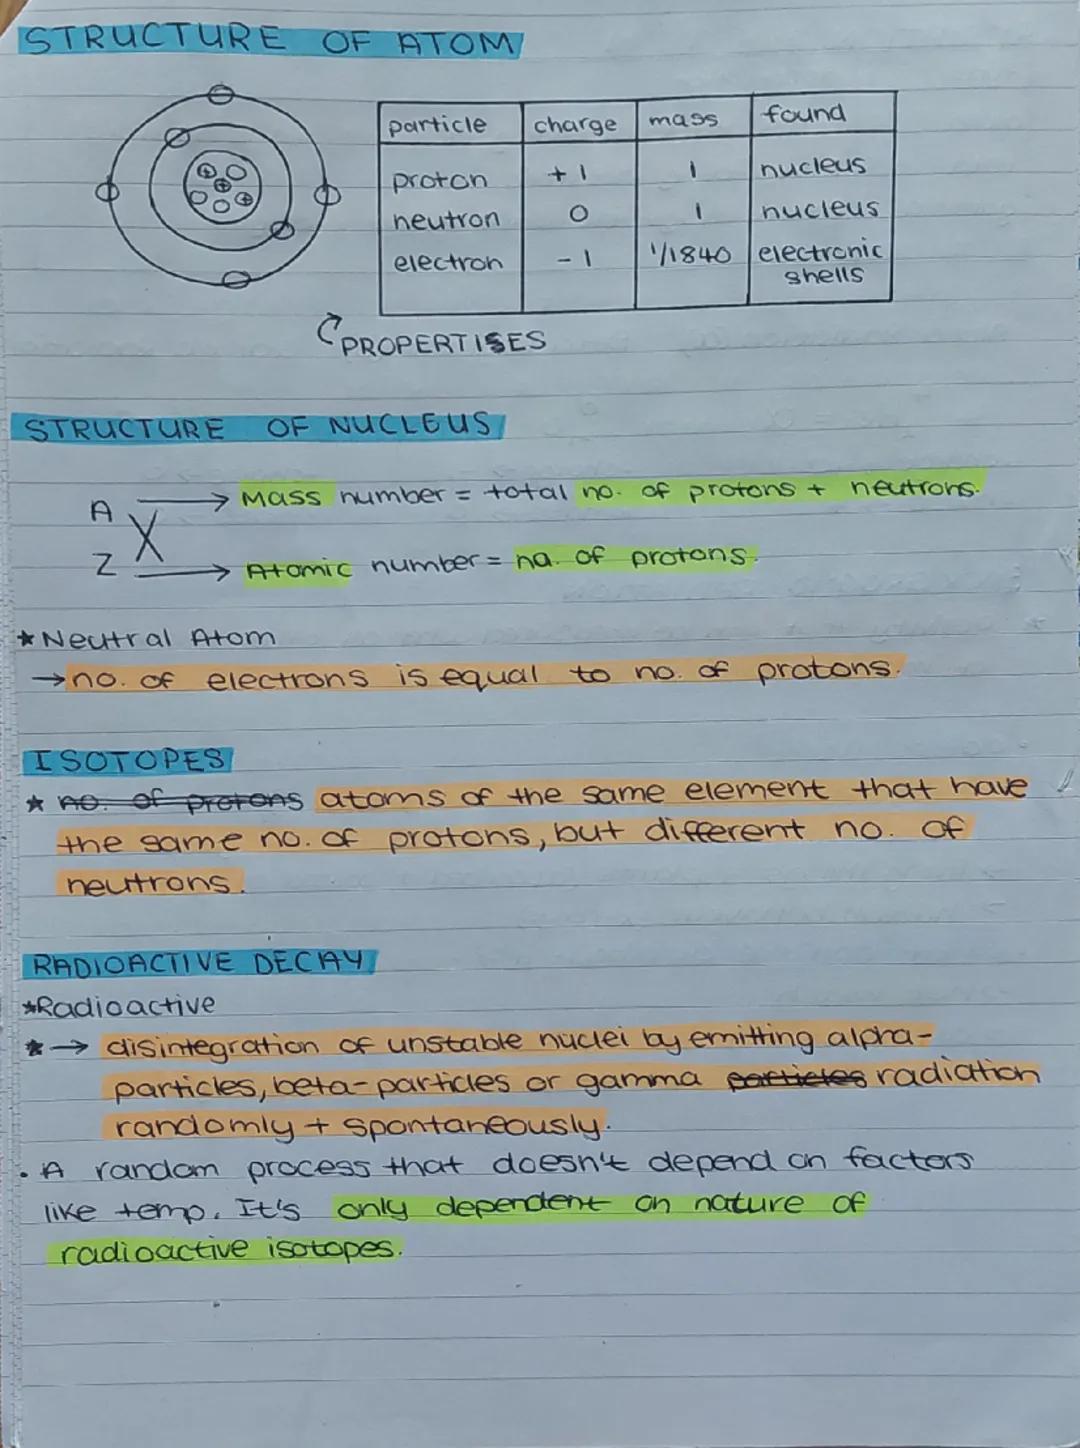 STRUCTURE OF ATOM
particle charge mass found
proton +1 1 nucleus
neutron 0 1 nucleus
electron -1 1/1840 electronic
shells
PROPERTISES
STRUCTURE OF NUCLEUS
A → Mass number = total no. of protons + neutrons.
X
Z → Atomic number = no. of protons.
★ Neutral Atom
→ no. of electrons is equal to no. of protons.
ISOTOPES
★ no. of protons atoms of the same element that have
the same no. of protons, but different no. of
neutrons.
RADIOACTIVE DECAY
★Radioactive
★ → disintegration of unstable nuclei by emitting alpha-
particles, beta-particles or gamma particles radiation
randomly + spontaneously.
• A random process that doesn't depend on factors
like temp. It's only dependent on nature of
radioactive isotopes.